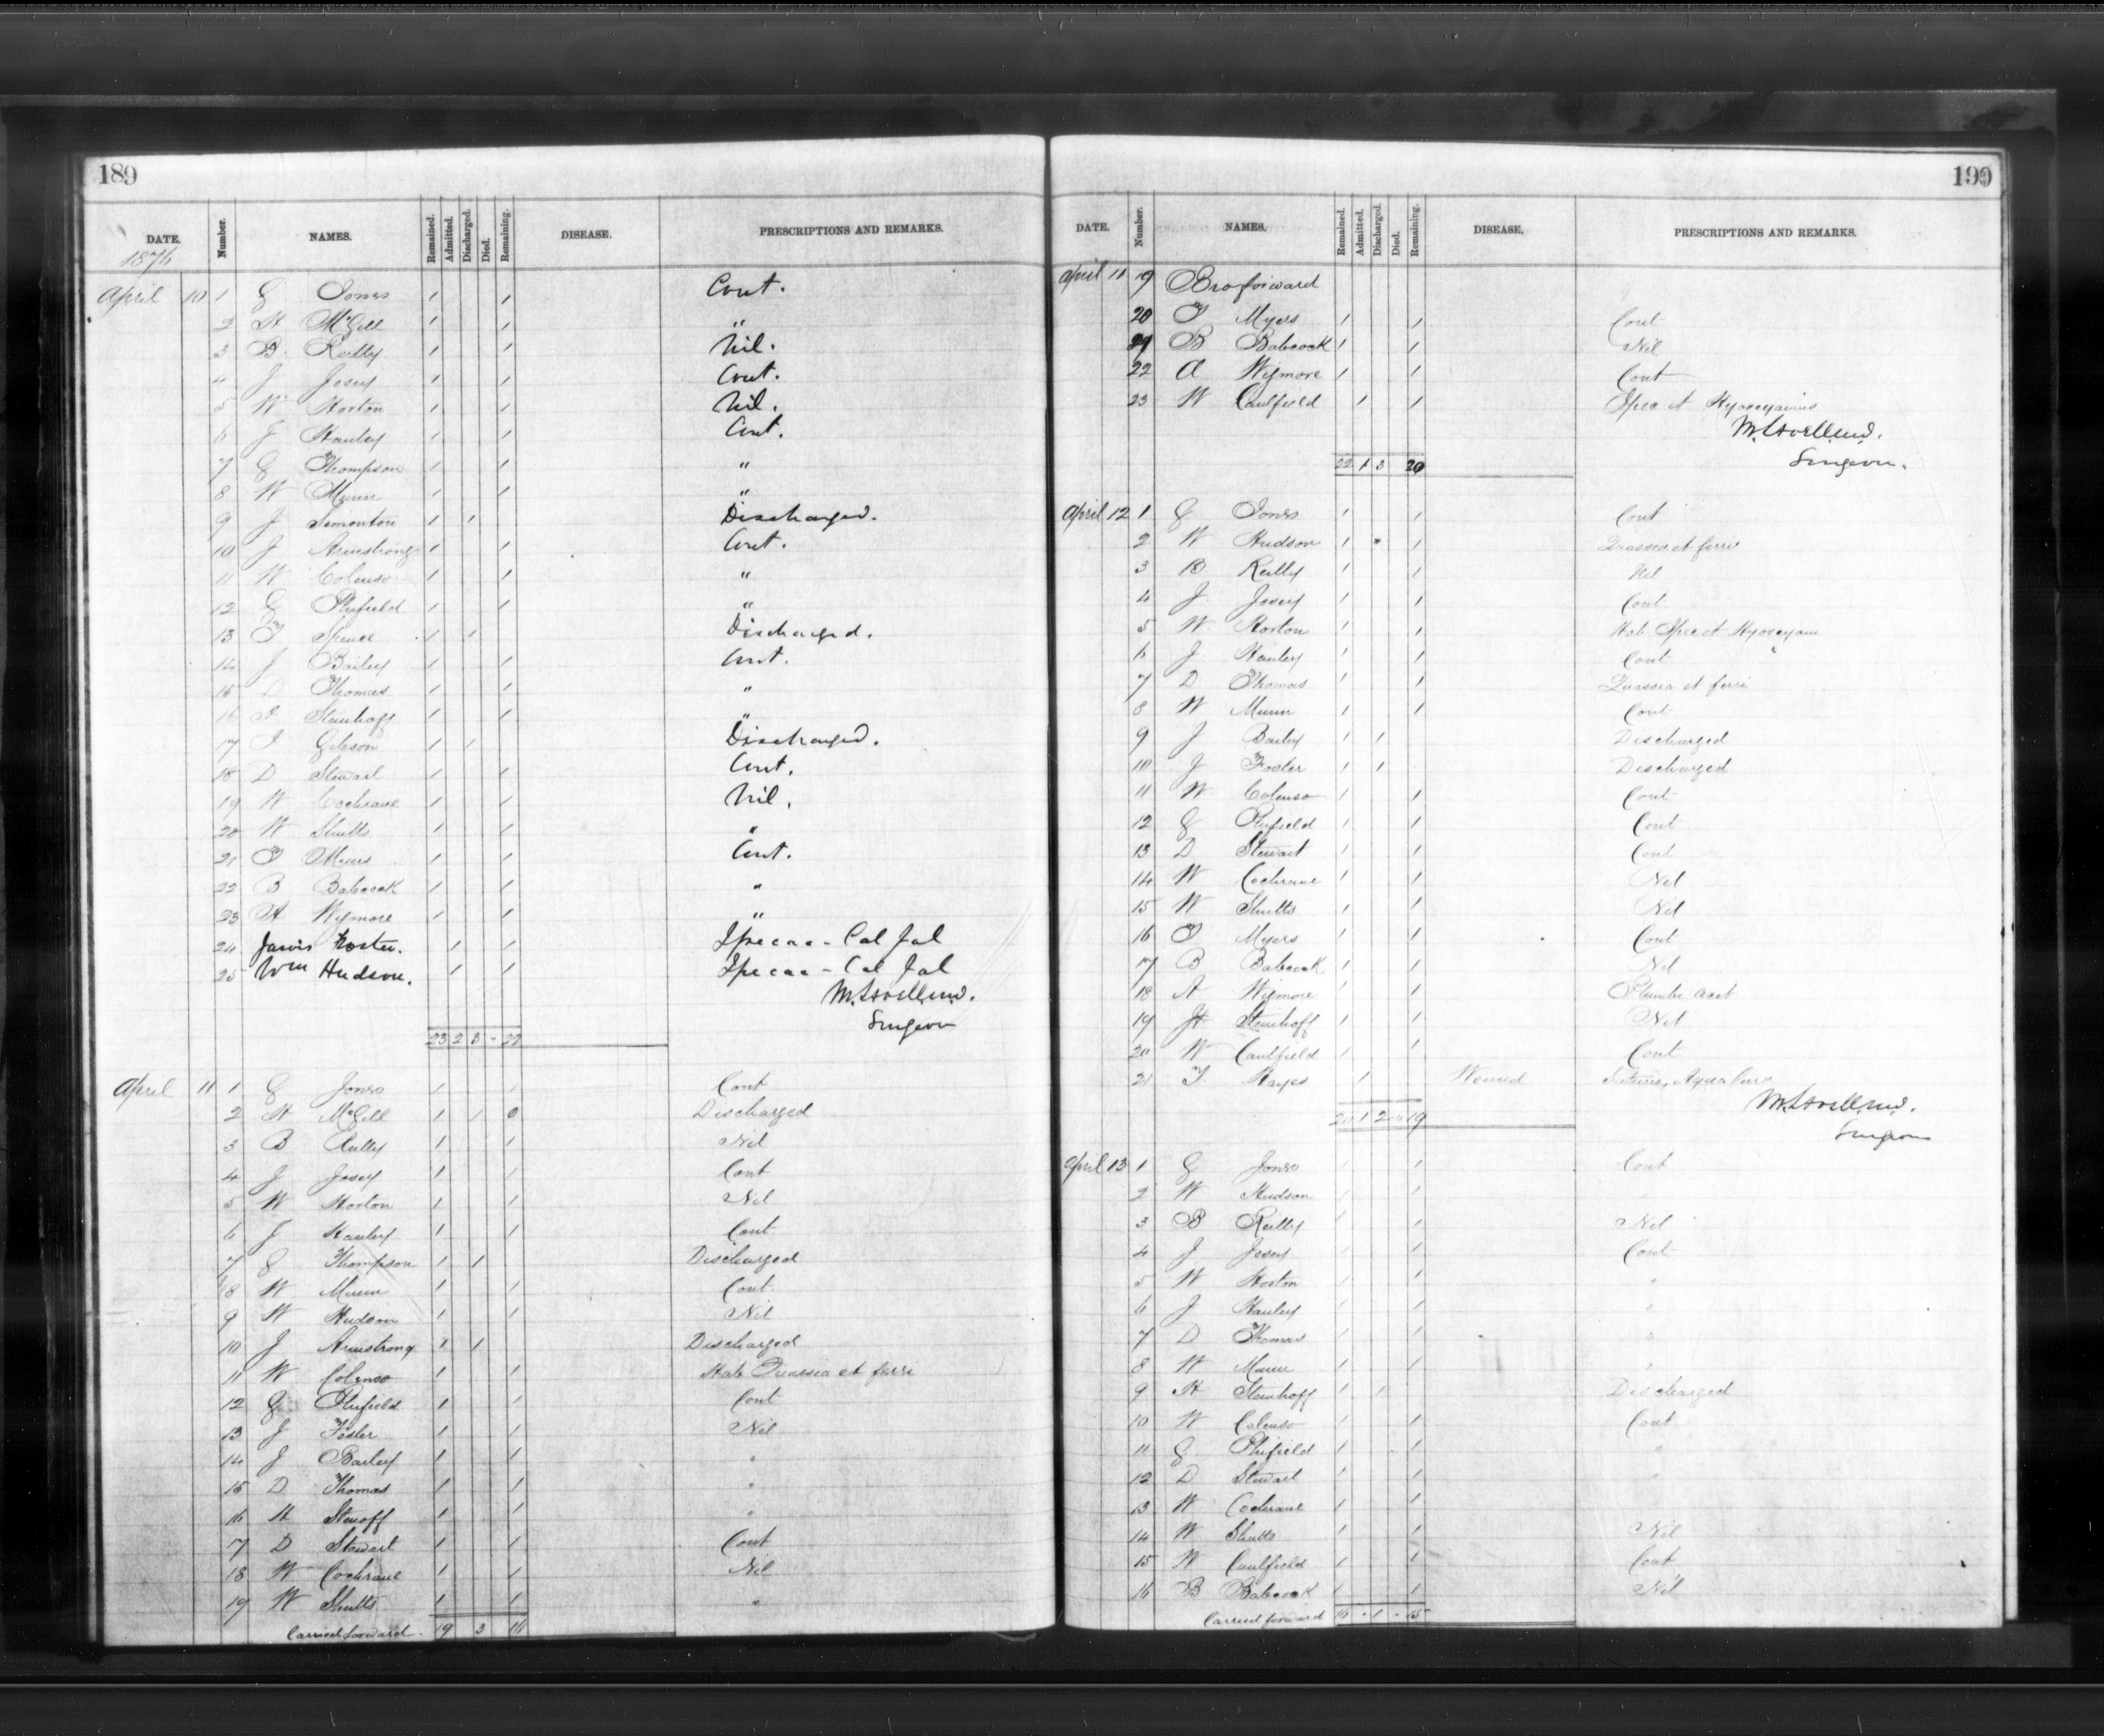 189
DATE. Number. NAMES. Remained. Admitted. Discharged. Died. Remaining. DISEASE. PRESCRIPTIONS AND REMARKS.
1876
April 10 1 G Jones 1 1 Cont.
2 H McGill 1 1 "
3 B. Reilly 1 1 Nil.
4 J Josey 1 1 Cont.
5 W Horton 1 1 Nil.
6 J Hanley 1 1 Cont.
7 G Thompson 1 1 "
8 W Munn 1 1 "
9 J Simonton 1 1 Discharged.
10 J Armstrong 1 1 Cont.
11 W Colenso 1 1 "
12 G Phifield 1 1 "
13 T Spence 1 1 Discharged.
14 J Bailey 1 1 Cont.
15 D Thomas 1 1 "
16 Steinhoff 1 1 "
17 Gibson 1 1 Discharged.
18 D Stewart 1 1 Cont.
19 W Cochrane 1 1 Nil.
20 W Shutts 1 1 "
21 T Myers 1 1 Cont.
22 B Babcock 1 1 "
23 A Wymore 1 1 "
24 Jarvis Foster. 1 1 Ipecac - Cal Jal
25 Wm Hudson. 1 1 Ipecac - Cal Jal
Surgeon
23 2 3 - 22
April 11 1 G Jones 1 1 Cont
2 H McGill 1 1 0 Discharged
3 B Reilly 1 1 Nil
4 J Josey 1 1 Cont
5 W Horton 1 1 Nil
6 J Hanley 1 1 Cont
7 G Thompson 1 1 Discharged
8 W Munn 1 1 Cont
9 W Hudson 1 1 Nil
10 J Armstrong 1 1 Discharged
11 W Colenso 1 1 Hab Quassia et ferri
12 G Phifield 1 1 Cont
13 J Foster 1 1 Nil
14 J Bailey 1 1 "
15 D Thomas 1 1 "
16 H Stenoff 1 1 "
17 D Stewart 1 1 Cont
18 W Cochrane 1 1 Nil
19 W Shutts 1 1 "
Carried forward. 19 3 16
190
DATE. Number. NAMES. Remained. Admitted. Discharged. Died. Remaining. DISEASE. PRESCRIPTIONS AND REMARKS.
April 11 19 Bro forward
20 T Myers 1 1 Cont
21 B Babcock 1 1 Nil
22 A Wymore 1 1 Cont
23 W Caulfield 1 1 Ipec et Hyoscyamus
Surgeon.
22 1 3 20
April 12 1 G Jones 1 1 Cont
2 W Hudson 1 1 Quassia et ferri
3 B Reilly 1 1 Nil
4 J. Josey 1 1 Cont
5 W. Horton 1 1 Hab Ipec et Hyoscyam
6 J Hanley 1 1 Cont
7 D Thomas 1 1 Quassia et ferri
8 W Munn 1 1 Cont
9 J Bailey 1 1 Discharged
10 J Foster 1 1 Discharged
11 W Colenso 1 1 Cont
12 G Phifield 1 1 Cont
13 D Stewart 1 1 Cont
14 W Cochrane 1 1 Nil
15 W Shutts 1 1 Nil
16 T Myers 1 1 Cont
17 B Babcock 1 1 Nil
18 A Wymore 1 1 Plumbi acet
19 H Steinhoff 1 1 Nil
20 W Caulfield 1 1 Cont
21 T Hayes 1 Wound
Surgeon
20 1 2 - 19
April 13 1 G Jones 1 1 Cont
2 W Hudson 1 1 "
3 B Reilly 1 1 Nil
4 J Josey 1 1 Cont
5 W Horton 1 1 "
6 J Hanley 1 1 "
7 D Thomas 1 1 "
8 W Munn 1 1 "
9 H Steinhoff 1 1 Discharged
10 W Colenso 1 1 Cont
11 G Phifield 1 1 "
12 D Stewart 1 1 "
13 W Cochrane 1 1
14 W Shutts 1 1 Nil
15 W Caulfield 1 1 Cont
16 B Babcock 1 1 Nil
Carried forward 16 - 1 - 15